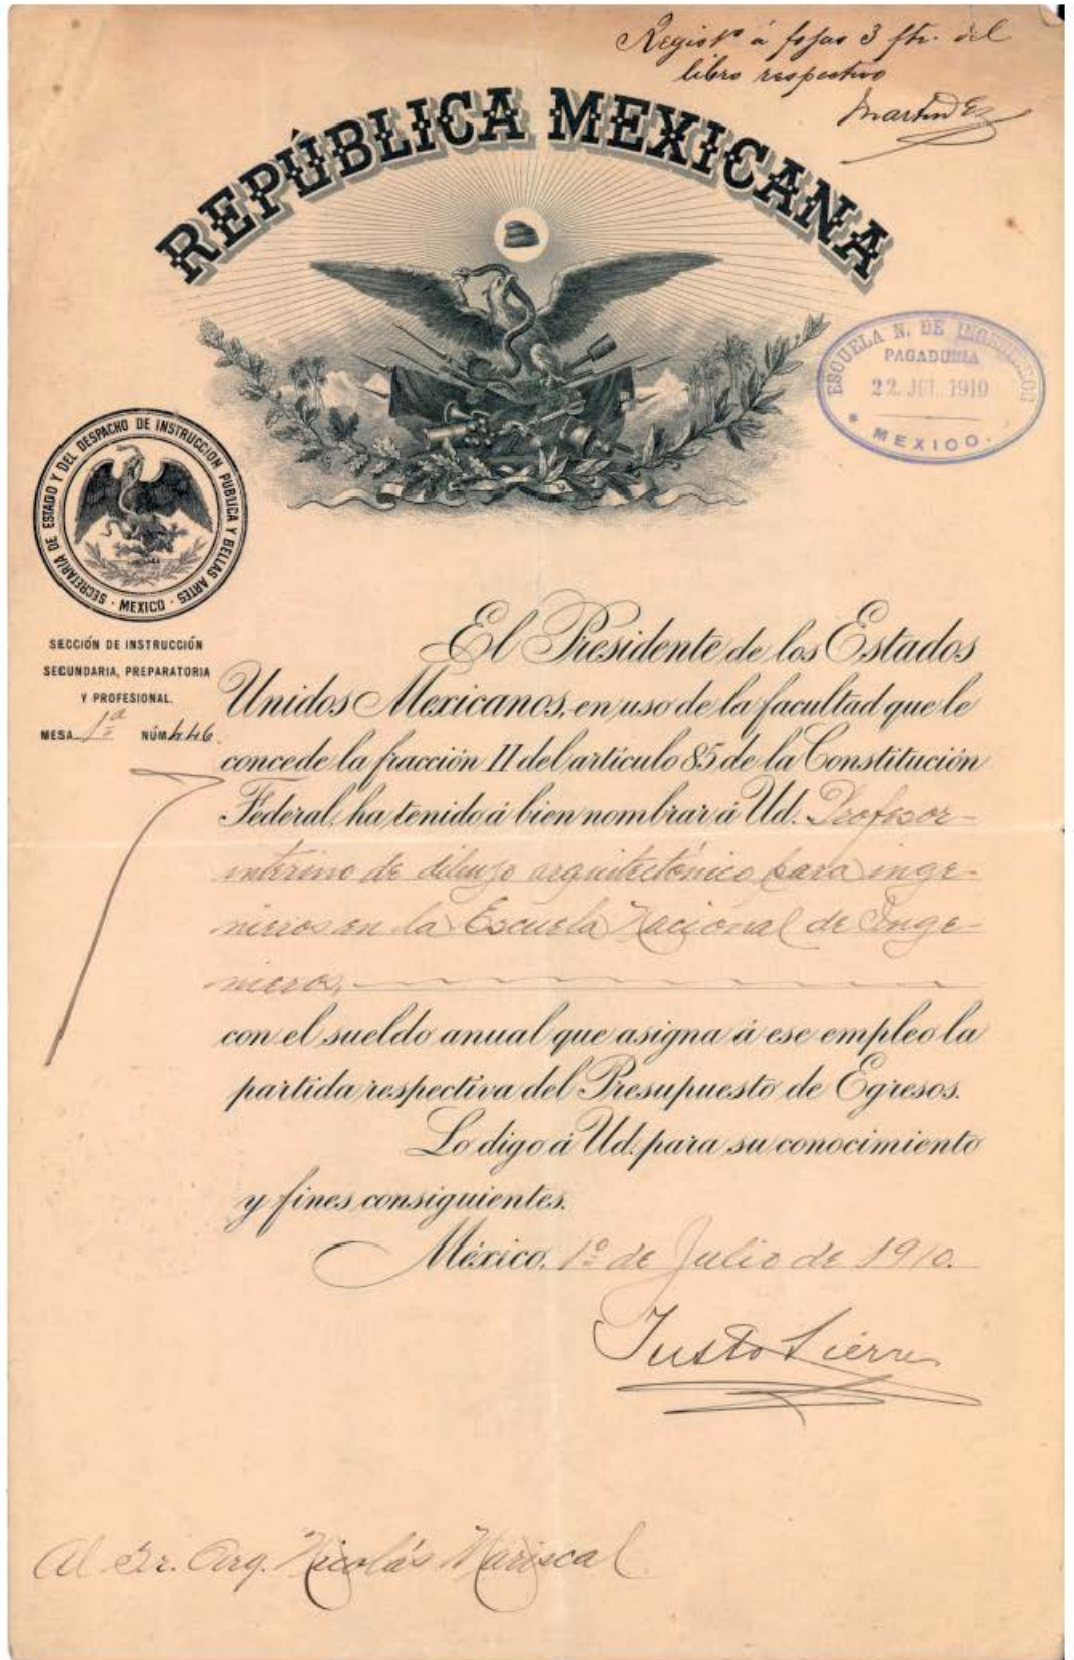 Registº á fojas 3 fte. del
libro respectivo
REPÚBLICA MEXICANA
ESCUELA N. DE INGENIEROS
PAGADURIA
22. JUL. 1910
MEXICO.
SECRETARIA DE ESTADO Y DEL DESPACHO DE INSTRUCCION PUBLICA Y BELLAS ARTES
· MEXICO ·
SECCIÓN DE INSTRUCCIÓN
SECUNDARIA, PREPARATORIA
Y PROFESIONAL.
MESA 1ª NÚM 446.
El Presidente de los Estados
Unidos Mexicanos, en uso de la facultad que le
concede la fracción II del artículo 85 de la Constitución
Federal, ha tenido á bien nombrar á Ud. Profesor
interino de dibujo arquitectónico para inge-
nieros en la Escuela Nacional de Inge-
nieros,
con el sueldo anual que asigna á ese empleo la
partida respectiva del Presupuesto de Egresos.
Lo digo á Ud. para su conocimiento
y fines consiguientes.
México, 1º de Julio de 1910.
Justo Sierra
Al Sr. Arq. Nicolás Mariscal